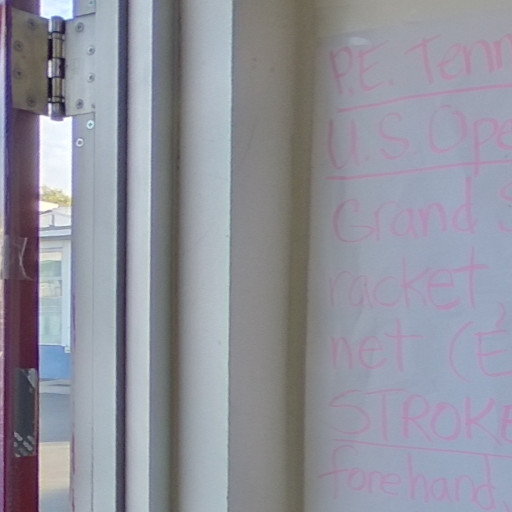 P.E. Tenn
U.S Ope
Grand S
racket,
net (E
STROKE
forehand,